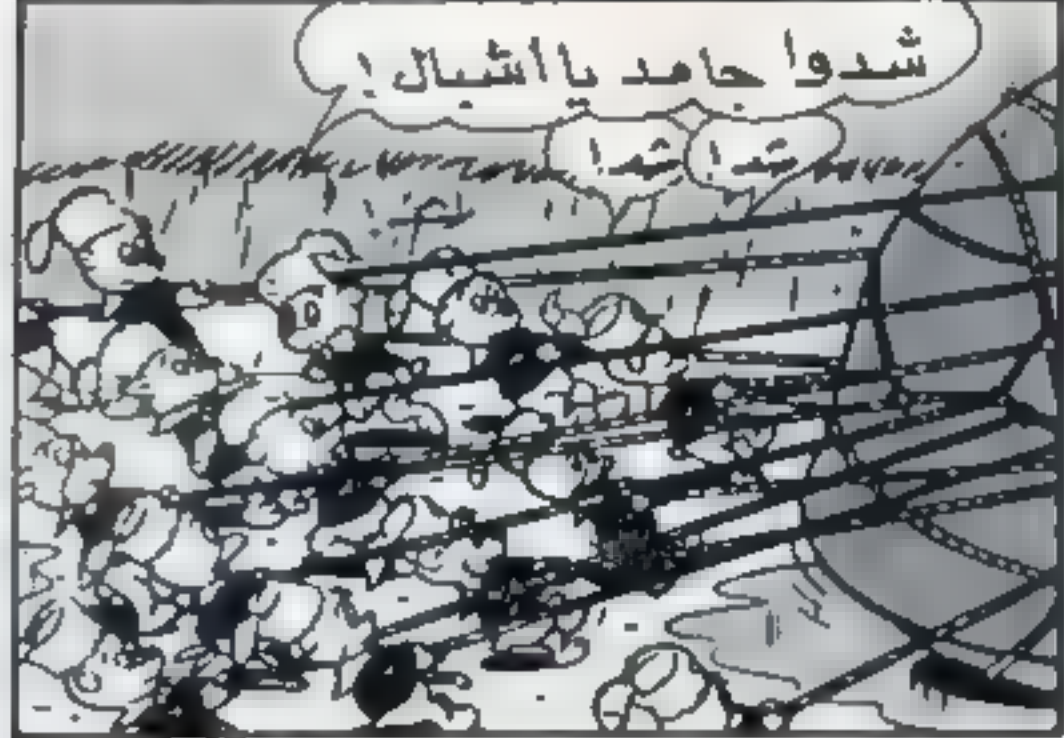 شدوا جامد يا اشبال !
شدا
شدا